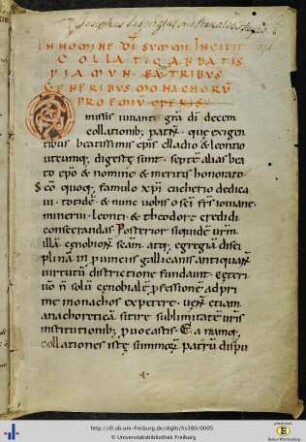 IN NOMINE DI SUMMI INCIPIT
COLLATIO ABBATIS
PIAMUN. EX TRIBUS
GENERIBUS MONACHORU
PROEMIU OPERIS
missis iuuante gra di decem
collationib; patru. que exigen
tibus beatissimis epis elladio et leontio
utcumq; digeste sunt. septe alias bea
to epo et nomine et meritis honorato
Sco quoq; famulo xpi eucherio dedica
ui. totide et nunc uobis o sci fres iouiane.
minerui. leonti. et theodore credidi
consecrandas. Posterior siquide urm
illa cenobioru scam. atq; egregia disci
plina in prouincis gallicanis antiquaru
uirtutu districtione fundauit. Ceteri
uo n solu cenobiale pfessione ad pri
me monachos expetere. ueru etiam
anachoretica sitire sublimitate uris
institutionib; puocastis. Ea namq;
collationes iste summoru patru dispu
http://dl.ub.uni-freiburg.de/diglit/hs380/0005
© Universitätsbibliothek Freiburg